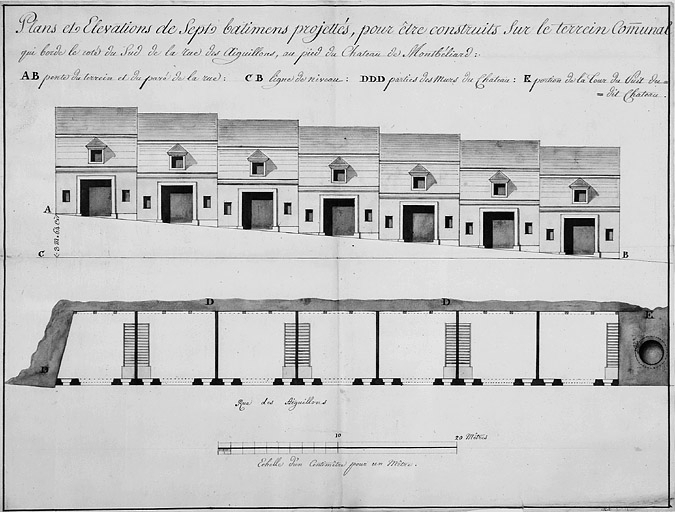 Plans et Elevations de Sept batimens projettés, pour être construits Sur le terrein Communal
qui borde le coté du Sud de la rue des Aiguillons, au pied du Chateau de Montbéliard:
AB pente du terrein et du pavé de la rue: CB ligne de niveau: DDD parties des Murs du Chateau: E portion de la Cour du Puit du=
=dit Chateau.
A
C
B
D
D
E
D
Rue des Aiguillons
10
20 Mètres
Echelle d'un Centimètre pour un Mètre.